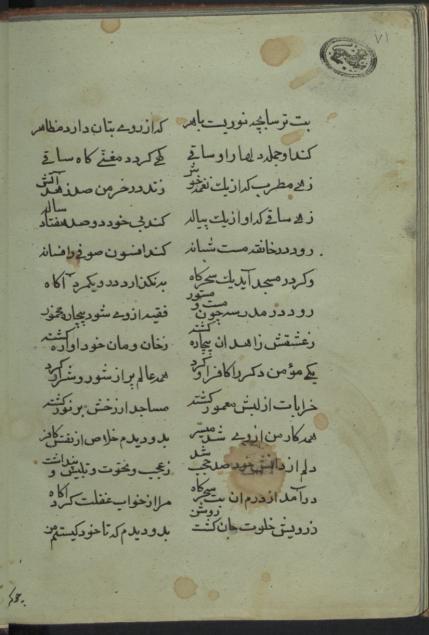 ۷۱
بت ترسا بچه نوریست باهر که از روے بتان دارد مظاهر
کند او جمله دلها را وساقے کهے کردد مغنے کاه ساقے
زهے مطرب که از یك نغمه خوش زند در خرمن صد زاهد آتش
زهے ساقے که او از یك پیاله کند بیخود دو صد هفتاد ساله
رود در خانقه مست شبانه کند افسون صوفے را فسانه
وکر در مسجد آید یك سحرکاه بنکذارد درو یکمرد آکاه
رود در مدرسه چون مست و مستور فقیه از وے شود بیچاره مخمور
زعشقش زاهدان بیچاره کشته زخان و مان خود اواره کشته
یکے مؤمن دکر را کافر او کرد همه عالم پر از شور و شر او کرد
خرابات از لبش معمور کشته مساجد از رخش پر نور کشته
همه کار من از وے شد میسر بدو دیدم خلاص از نفس کافر
دلم از دانش خود صد حجب زعجب و نخوت و تلبیس و پنداشت
درآمد از درم ان بت سحرکاه مرا از خواب غفلت کرد اکاه
زرویش خلوت جان کشت روشن بدو دیدم که تا خود کیستم من